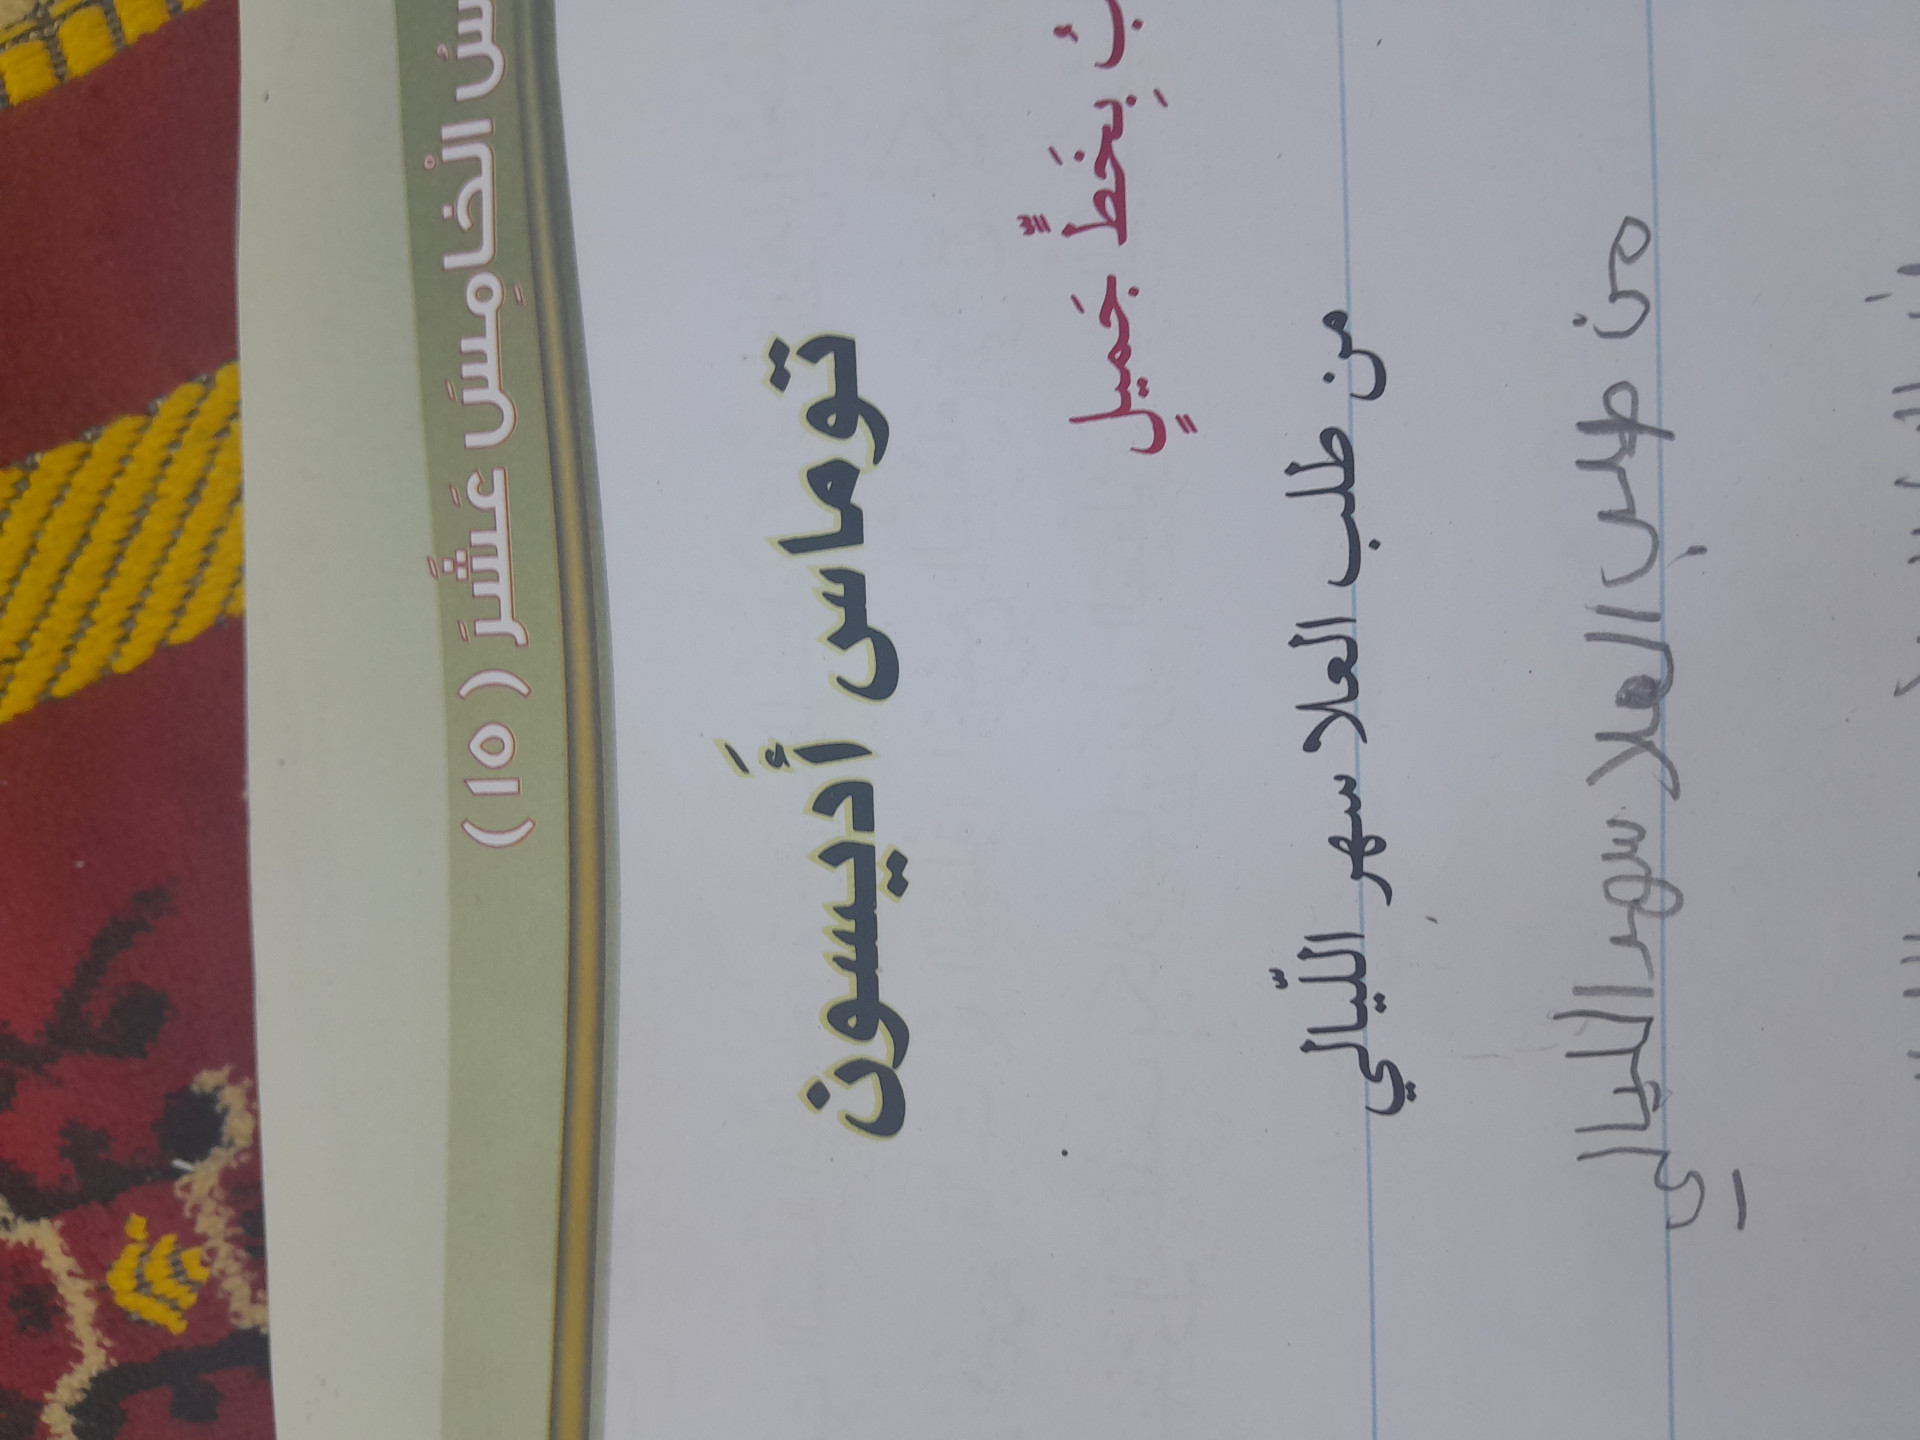 الْخامِسَ عَشَرَ ( ١٥ )
توماس أَديسون
بِخَطٍّ جَميلٍ
من طلب العلا سهر اللّيالي
من طلب العلا سهر الليالي